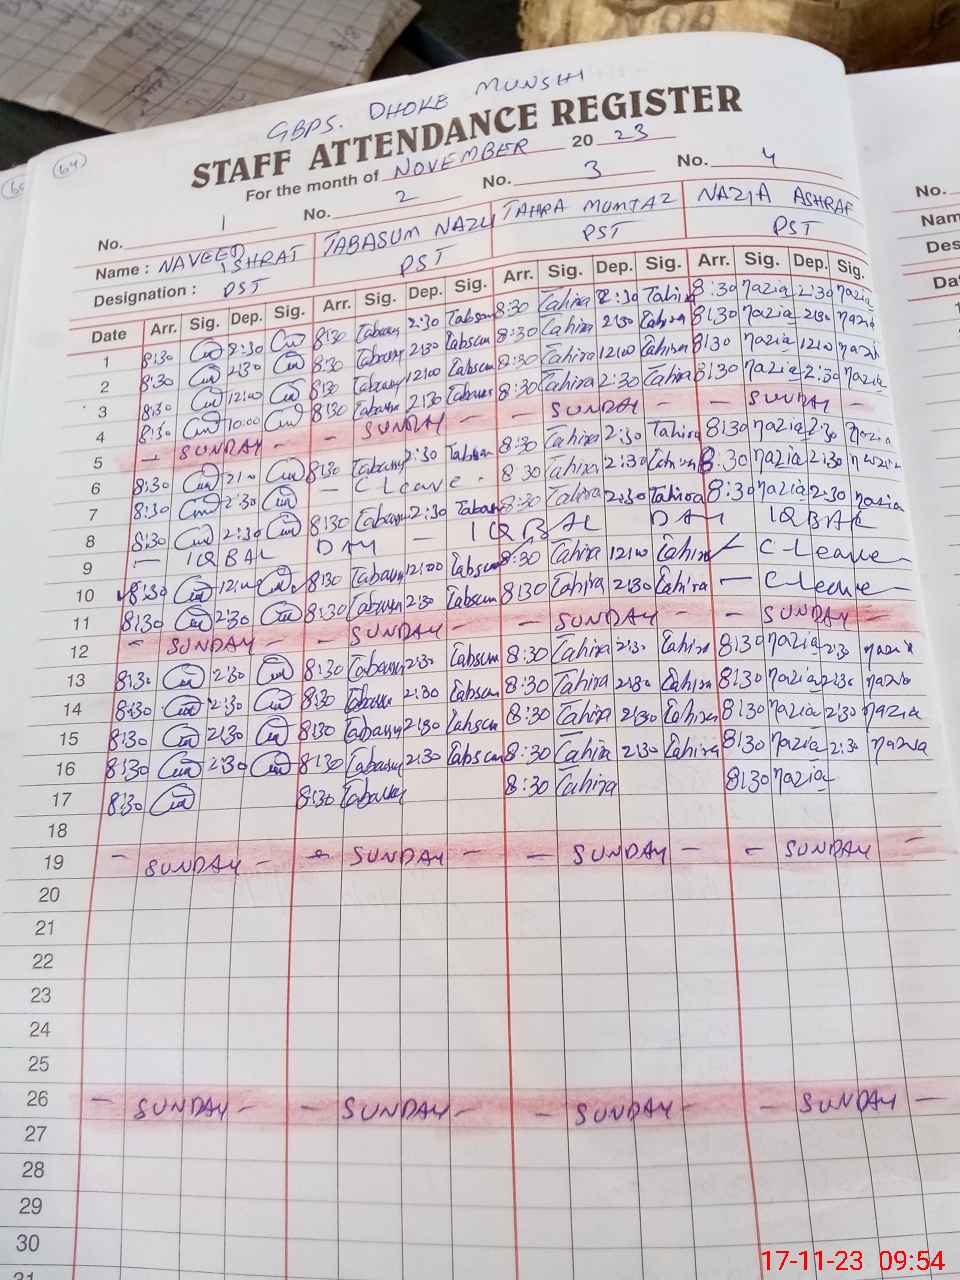 64
GBPS. DHOKE MUNSHI
STAFF ATTENDANCE REGISTER
For the month of NOVEMBER 20 23
No. 1 No. 2 No. 3 No. 4 No.
Name : NAVEED ISHRAT TABASUM NAZLI TAHRA MUMTAZ NAZIA ASHRAF Nam
Designation : PST PST PST PST Des
Date Arr. Sig. Dep. Sig. Arr. Sig. Dep. Sig. Arr. Sig. Dep. Sig. Arr. Sig. Dep. Sig. Dat
1 8:30 2:30 8:30 Tabasum 2:30 Tabsum 8:30 Tahira 2:30 Tahira 8:30 nazia 2:30 nazia
2 8:30 2:30 8:30 Tabasum 2:30 Tabsum 8:30 Tahira 2:30 Tahira 8:30 nazia 2:30 nazia
3 8:30 12:00 8:30 Tabasum 12:00 Tabsum 8:30 Tahira 12:00 Tahira 8:30 nazia 12:00 nazia
4 8:30 10:00 8:30 Tabasum 2:30 Tabasum 8:30 Tahira 2:30 Tahira 8:30 nazia 2:30 nazia
5 - SUNDAY - - SUNDAY - - SUNDAY - - SUNDAY -
6 8:30 8:30 Tabasum 2:30 Tabsum 8:30 Tahira 2:30 Tahira 8:30 nazia 2:30 nazia
7 8:30 2:30 - C Leave - 8:30 Tahira 2:30 Tahira 8:30 nazia 2:30 nazia
8 8:30 2:30 8:30 Tabasum 2:30 Tabasum 8:30 Tahira 2:30 Tahira 8:30 nazia 2:30 nazia
9 - IQBAL DAY - IQBAL DAY IQBAL
10 8:30 12:00 8:30 Tabasum 12:00 Tabsum 8:30 Tahira 12:00 Tahira - C Leave -
11 8:30 2:30 8:30 Tabasum 2:30 Tabsum 8:30 Tahira 2:30 Tahira - C Leave -
12 - SUNDAY - - SUNDAY - - SUNDAY - - SUNDAY -
13 8:30 2:30 8:30 Tabasum 2:30 Tabsum 8:30 Tahira 2:30 Tahira 8:30 nazia 2:30 nazia
14 8:30 2:30 8:30 Tabasum 2:30 Tabsum 8:30 Tahira 2:30 Tahira 8:30 nazia 2:30 nazia
15 8:30 2:30 8:30 Tabasum 2:30 Tabsum 8:30 Tahira 2:30 Tahira 8:30 nazia 2:30 nazia
16 8:30 2:30 8:30 Tabasum 2:30 Tabsum 8:30 Tahira 2:30 Tahira 8:30 nazia 2:30 nazia
17 8:30 8:30 Tabasum 8:30 Tahira 8:30 nazia
18
19 - SUNDAY - - SUNDAY - - SUNDAY - - SUNDAY -
20
21
22
23
24
25
26 - SUNDAY - - SUNDAY - - SUNDAY - - SUNDAY -
27
28
29
30
31
17-11-23 09:54